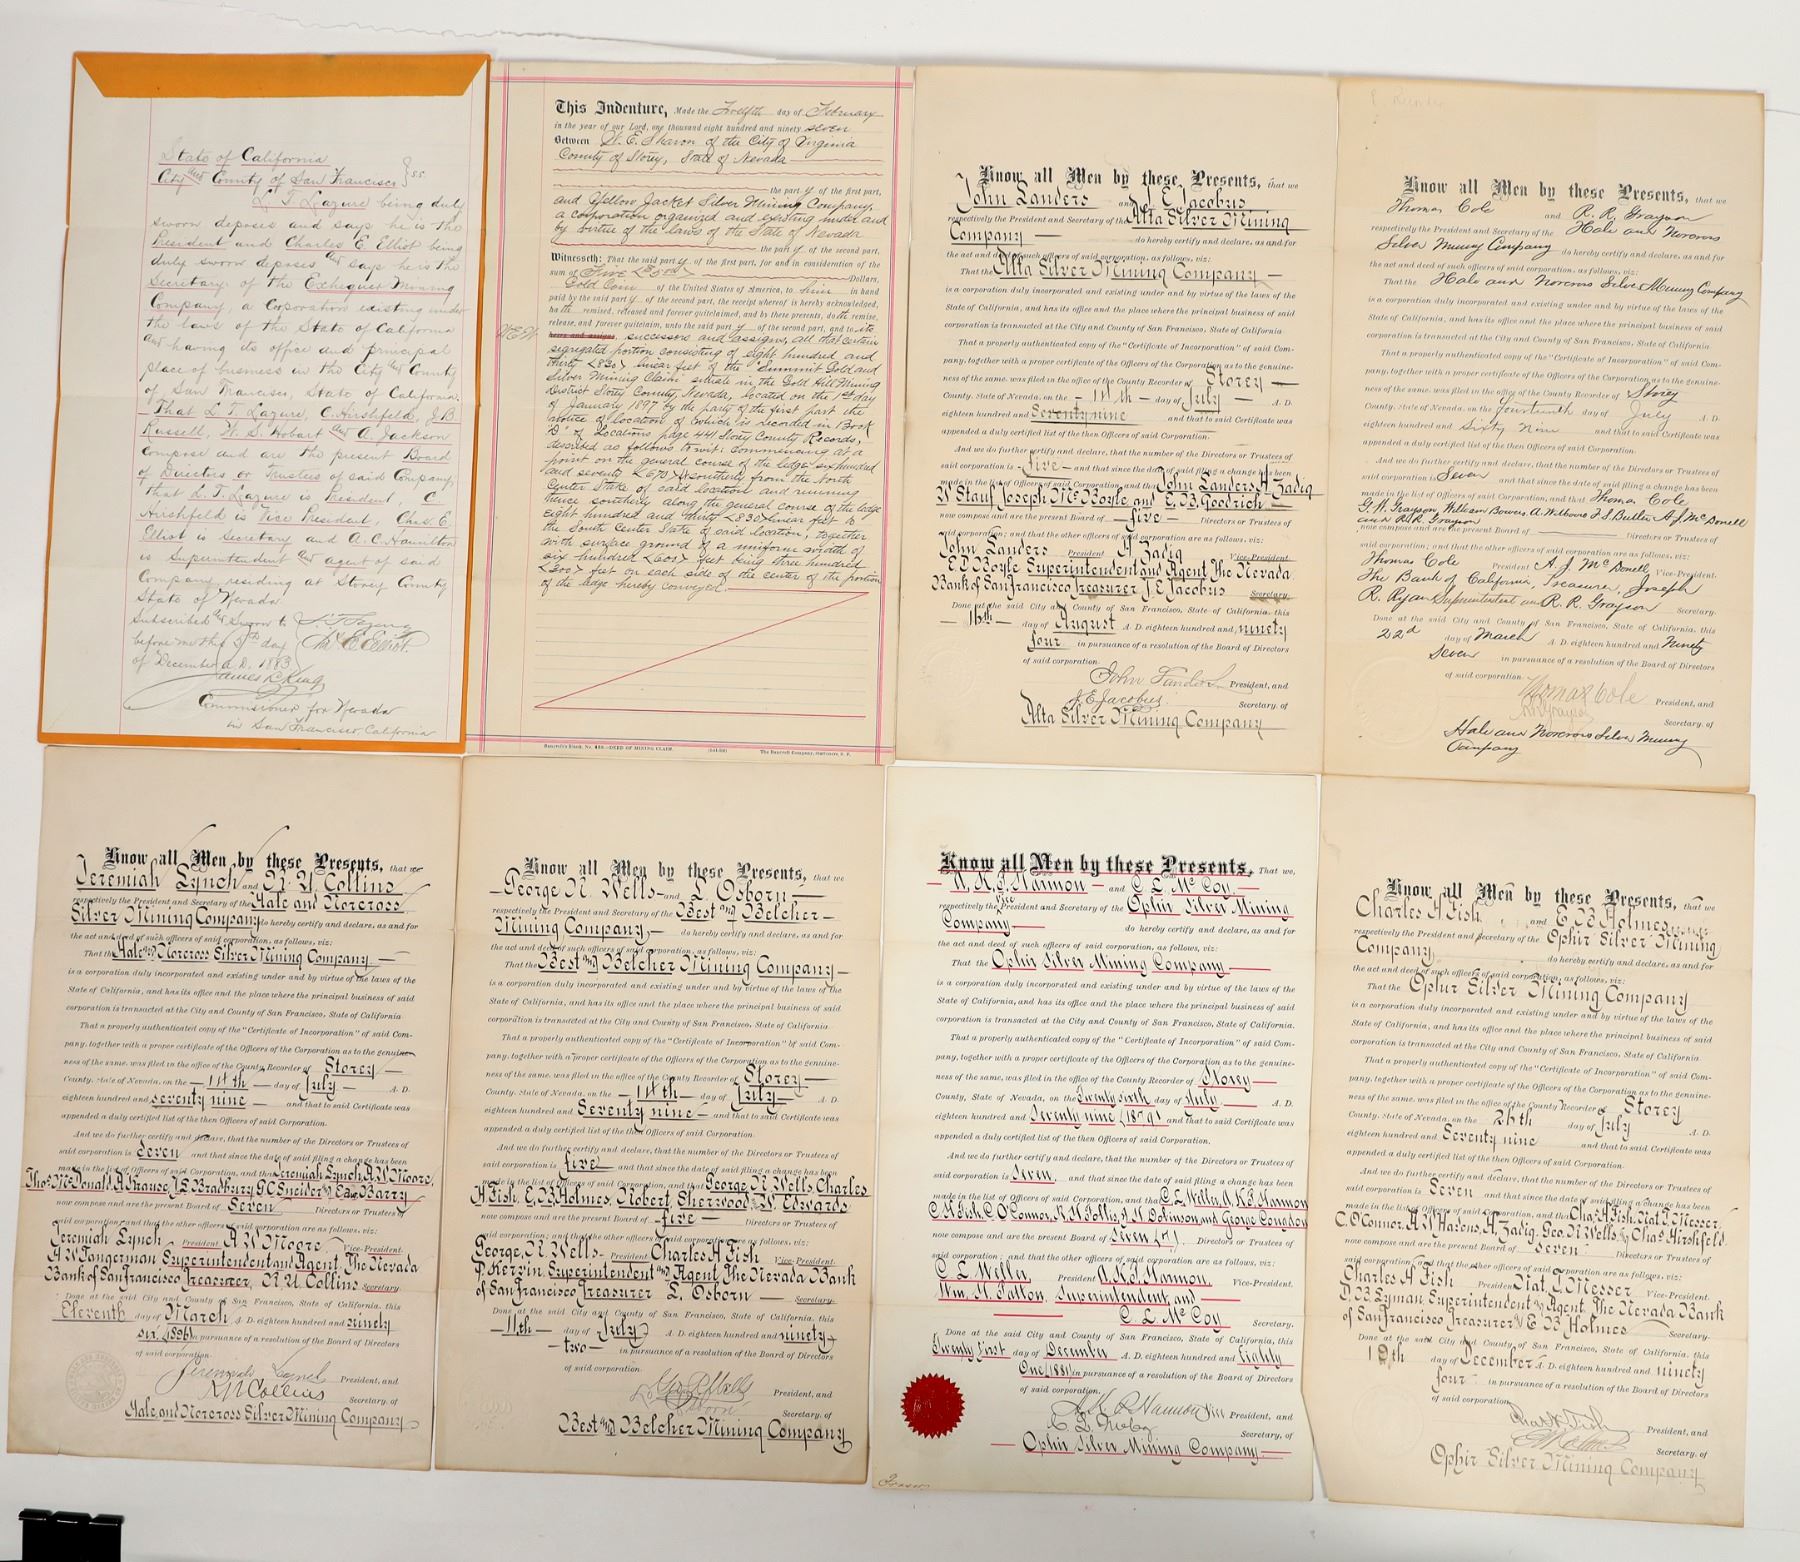 State of California
City and County of San Francisco } ss.
L. T. Lazure being duly
sworn deposes and says he is the
President and Charles E. Elliot being
duly sworn deposes and says he is the
Secretary of the Exchequer Mining
Company, a Coporation existing under
the laws of the State of California
and having its office and principal
place of business in the City and County
of San Francisco, State of California.
That L. T. Lazure, C. Hirshfeld, J. B.
Russell, W. S. Hobart and A. Jackson
compose and are the present Board
of Directors or Trustees of said Company,
that L. T. Lazure is President, C
Hirshfeld is Vice President, Chas. E.
Elliot is Secretary and A. C. Hamilton
is Superintendent and agent of said
Company, residing at Storey County
State of Nevada.
Subscribed and Sworn to
before me this 9th day Chs E Elliot
of December A.D. 1883
James L. King
Commissioner for Nevada
in San Francisco, California
This Indenture, Made the Twelfth day of February
in the year of our Lord, one thousand eight hundred and ninety seven
Between W. E. Sharon of the City of Virginia
County of Storey, State of Nevada
the party of the first part,
and Yellow Jacket Silver Mining Company,
a corporation organized and existing under and
by virtue of the laws of the State of Nevada
the party of the second part,
Witnesseth: That the said party of the first part, for and in consideration of the
sum of Five (5.00) Dollars,
Gold Coin of the United States of America, to him in hand
paid by the said party of the second part, the receipt whereof is hereby acknowledged,
hath remised, released and forever quitclaimed, and by these presents, doth remise,
release, and forever quitclaim, unto the said party of the second part, and to its
heirs and assigns, successors and assigns, all that certain
segregated portion consisting of eight hundred and
thirty (830) linear feet of the "Summit Gold and
Silver Mining Claim" situate in the Gold Hill Mining
District Story County, Nevada, located on the 1st day
of January 1897 by the party of the first part the
notice of location of which is recorded in Book
"D" of Locations page 441 Story County Records,
described as follows to wit: commencing at a
point on the general course of the ledge six hundred
and seventy (670) ft southerly from the North
Center Stake of said location and running
thence southerly along the general course of the ledge
eight hundred and thirty (830) linear feet to
the South Center Stake of said location, together
with surface ground of a uniform width of
six hundred (600) feet being three hundred
(300) feet on each side of the center of the portion
of the ledge hereby conveyed.
Bancroft's Blank, No. 488—DEED OF MINING CLAIM.
The Bancroft Company, Stationers, S. F.
Know all Men by these Presents, that we
John Landers and J. E. Jacobus
respectively the President and Secretary of the Alta Silver Mining
Company do hereby certify and declare, as and for
the act and deed of such officers of said corporation, as follows, viz:
That the Alta Silver Mining Company
is a corporation duly incorporated and existing under and by virtue of the laws of the
State of California, and has its office and the place where the principal business of said
corporation is transacted at the City and County of San Francisco, State of California
That a properly authenticated copy of the "Certificate of Incorporation" of said Com-
pany, together with a proper certificate of the Officers of the Corporation as to the genuine-
ness of the same, was filed in the office of the County Recorder of Storey
County, State of Nevada, on the 14th day of July A. D.
eighteen hundred and Seventy nine and that to said Certificate was
appended a duly certified list of the then Officers of said Corporation.
And we do further certify and declare, that the number of the Directors or Trustees of
said corporation is five and that since the date of said filing a change has been
made in the list of Officers of said Corporation, and that John Landers, A. Zadig
W Stauf, Joseph Mc Boyle and E. B. Goodrich
now compose and are the present Board of five Directors or Trustees of
said corporation; and that the other officers of said corporation are as follows, viz:
John Landers President A. Zadig Vice-President
E. D. Boyle Superintendent and Agent The Nevada
Bank of San Francisco Treasurer J. E. Jacobus Secretary.
Done at the said City and County of San Francisco, State of California, this
16th day of August A. D. eighteen hundred and ninety
four in pursuance of a resolution of the Board of Directors
of said corporation.
John Landers President, and
J. E. Jacobus Secretary, of
Alta Silver Mining Company
Know all Men by these Presents, that we
Thomas Cole and R. R. Grayson
respectively the President and Secretary of the Hale and Norcross
Silver Mining Company do hereby certify and declare, as and for
the act and deed of such officers of said corporation, as follows, viz:
That the Hale and Norcross Silver Mining Company
is a corporation duly incorporated and existing under and by virtue of the laws of the
State of California, and has its office and the place where the principal business of said
corporation is transacted at the City and County of San Francisco, State of California
That a properly authenticated copy of the "Certificate of Incorporation" of said Com-
pany, together with a proper certificate of the Officers of the Corporation as to the genuine-
ness of the same, was filed in the office of the County Recorder of Storey
County, State of Nevada, on the fourteenth day of July A. D.
eighteen hundred and Sixty Nine and that to said Certificate was
appended a duly certified list of the then Officers of said Corporation.
And we do further certify and declare, that the number of the Directors or Trustees of
said corporation is Seven and that since the date of said filing a change has been
made in the list of Officers of said Corporation, and that Thomas Cole
G. W. Grayson, William Bowers, A. Wilborn J. S. Butler A. J. McDonell
and R. R. Grayson
now compose and are the present Board of Directors or Trustees of
said corporation; and that the other officers of said corporation are as follows, viz:
Thomas Cole President A. J. McDonell, Vice-President.
The Bank of California, Treasurer, Joseph
R. Ryan Superintendent and R. R. Grayson Secretary.
Done at the said City and County of San Francisco, State of California, this
22d day of March A. D. eighteen hundred and Ninety
Seven in pursuance of a resolution of the Board of Directors
of said corporation.
Thomas Cole President, and
R R Grayson Secretary, of
Hale and Norcross Silver Mining
Company
Know all Men by these Presents, that we
Jeremiah Lynch and R. U. Collins
respectively the President and Secretary of the Hale and Norcross
Silver Mining Company do hereby certify and declare, as and for
the act and deed of such officers of said corporation, as follows, viz:
That the Hale and Norcross Silver Mining Company
is a corporation duly incorporated and existing under and by virtue of the laws of the
State of California, and has its office and the place where the principal business of said
corporation is transacted at the City and County of San Francisco, State of California
That a properly authenticated copy of the "Certificate of Incorporation" of said Com-
pany, together with a proper certificate of the Officers of the Corporation as to the genuine-
ness of the same, was filed in the office of the County Recorder of Storey
County, State of Nevada, on the 14th day of July A. D.
eighteen hundred and seventy nine and that to said Certificate was
appended a duly certified list of the then Officers of said Corporation.
And we do further certify and declare, that the number of the Directors or Trustees of
said corporation is Seven and that since the date of said filing a change has been
made in the list of Officers of said Corporation, and that Jeremiah Lynch, A. W. Moore,
Thos. McDonald, A. Krause, J. S. Bradbury, G. C. Sneider and Edw. Barry
now compose and are the present Board of Seven Directors or Trustees of
said corporation; and that the other officers of said corporation are as follows, viz:
Jeremiah Lynch President A W Moore Vice-President.
A. W. Tangerman Superintendent and Agent, The Nevada
Bank of San Francisco Treasurer, R. U. Collins Secretary.
Done at the said City and County of San Francisco, State of California, this
Eleventh day of March A. D. eighteen hundred and ninety
six (1896) in pursuance of a resolution of the Board of Directors
of said corporation.
Jeremiah Lynch President, and
R. U. Collins Secretary, of
Hale and Norcross Silver Mining Company
Know all Men by these Presents, that we
George R. Wells and L. Osborn
respectively the President and Secretary of the Best and Belcher
Mining Company, do hereby certify and declare, as and for
the act and deed of such officers of said corporation, as follows, viz:
That the Best and Belcher Mining Company
is a corporation duly incorporated and existing under and by virtue of the laws of the
State of California, and has its office and the place where the principal business of said
corporation is transacted at the City and County of San Francisco, State of California
That a properly authenticated copy of the "Certificate of Incorporation" of said Com-
pany, together with a proper certificate of the Officers of the Corporation as to the genuine-
ness of the same, was filed in the office of the County Recorder of Storey
County, State of Nevada, on the 14th day of July A. D.
eighteen hundred and Seventy nine and that to said Certificate was
appended a duly certified list of the then Officers of said Corporation.
And we do further certify and declare, that the number of the Directors or Trustees of
said corporation is five and that since the date of said filing a change has been
made in the list of Officers of said Corporation, and that George R. Wells, Charles
H. Fish, E. B. Holmes, Robert Sherwood and W. Edwards
now compose and are the present Board of five Directors or Trustees of
said corporation; and that the other officers of said corporation are as follows, viz:
George R. Wells President Charles H Fish Vice-President.
P. Kervin, Superintendent and Agent, The Nevada Bank
of San Francisco Treasurer L. Osborn Secretary.
Done at the said City and County of San Francisco, State of California, this
11th day of July A. D. eighteen hundred and ninety
two in pursuance of a resolution of the Board of Directors
of said corporation.
Geo R Wells President, and
L Osborn Secretary, of
Best and Belcher Mining Company
Know all Men by these Presents, That we,
A. K. P. Harmon and C. L. Mc Coy
respectively the Vice President and Secretary of the Ophir Silver Mining
Company do hereby certify and declare, as and for
the act and deed of such officers of said corporation, as follows, viz:
That the Ophir Silver Mining Company
is a corporation duly incorporated and existing under and by virtue of the laws of the
State of California, and has its office and the place where the principal business of said
corporation is transacted at the City and County of San Francisco, State of California.
That a properly authenticated copy of the "Certificate of Incorporation" of said Com-
pany, together with a proper certificate of the Officers of the Corporation as to the genuine-
ness of the same, was filed in the office of the County Recorder of Storey
County, State of Nevada, on the Twenty sixth day of July A. D.
eighteen hundred and Seventy nine (1879) and that to said Certificate was
appended a duly certified list of the then Officers of said Corporation.
And we do further certify and declare, that the number of the Directors or Trustees of
said corporation is Seven, and that since the date of said filing a change has been
made in the list of Officers of said Corporation, and that C. E. Weller, A. K. P. Harmon
C. H. Fish, C. O'Connor, R. H. Follis, J. M. Dickinson, and George Congdon
now compose and are the present Board of Seven (7) Directors or Trustees of
said corporation; and that the other officers of said corporation are as follows, viz:
C E Weller President A. K. P. Harmon, Vice-President.
Wm. H. Patton, Superintendent, and
C. L. Mc Coy Secretary.
Done at the said City and County of San Francisco, State of California, this
Twenty First day of December A. D. eighteen hundred and Eighty
One (1881) in pursuance of a resolution of the Board of Directors
of said corporation.
A K P Harmon Vice President, and
C. L. McCoy Secretary, of
Ophir Silver Mining Company
Know all Men by these Presents, that we
Charles H Fish and E B Holmes
respectively the President and Secretary of the Ophir Silver Mining
Company do hereby certify and declare, as and for
the act and deed of such officers of said corporation, as follows, viz:
That the Ophir Silver Mining Company
is a corporation duly incorporated and existing under and by virtue of the laws of the
State of California, and has its office and the place where the principal business of said
corporation is transacted at the City and County of San Francisco, State of California
That a properly authenticated copy of the "Certificate of Incorporation" of said Com-
pany, together with a proper certificate of the Officers of the Corporation as to the genuine-
ness of the same, was filed in the office of the County Recorder of Storey
County, State of Nevada, on the 26th day of July A. D.
eighteen hundred and Seventy nine and that to said Certificate was
appended a duly certified list of the then Officers of said Corporation.
And we do further certify and declare, that the number of the Directors or Trustees of
said corporation is Seven and that since the date of said filing a change has been
made in the list of Officers of said Corporation, and that Chas. H. Fish, Nat. T. Messer,
C. O'Connor, H. W. Havens, A. Zadig, Geo. R. Wells, & Chas. Hirshfeld
now compose and are the present Board of Seven Directors or Trustees of
said corporation; and that the other officers of said corporation are as follows, viz:
Charles H Fish President Nat. T. Messer Vice-President.
D. B. Lyman, Superintendent and Agent, The Nevada Bank
of San Francisco Treasurer & E B Holmes Secretary.
Done at the said City and County of San Francisco, State of California, this
19th day of December A. D. eighteen hundred and ninety
four in pursuance of a resolution of the Board of Directors
of said corporation.
Chas H Fish President, and
E B Holmes Secretary, of
Ophir Silver Mining Company